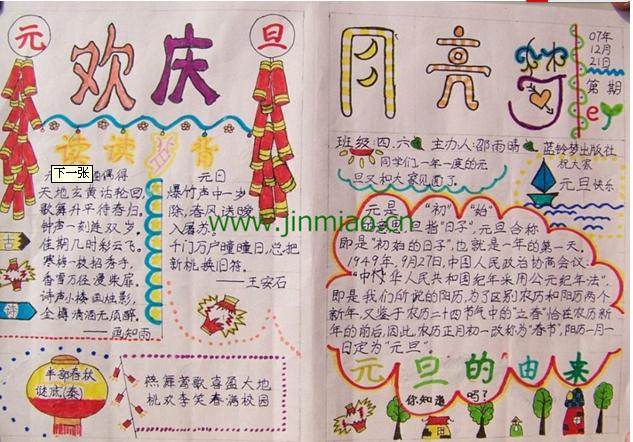 元 旦
欢庆
诵读 背
下一张
偶得
天地玄黄诂轮回,
歌舞升平待春归,
钟声一刻连双岁,
佳期几时彩云飞。
寒梅一枝招秀手,
香雪万径漫柴扉,
诗声小楼画烛影,
金樽清酒无须醉。
古
诗
元日
爆竹声中一岁
除,春风送暖
入屠苏。
千门万户曈曈日,总把
新桃换旧符。
——王安石
半部春秋
谜底(秦)
燕舞莺歌喜盈大地
桃欢李笑春满校园
www.jinmiao.cn
月亮
07年
12月
21日
第 期
班级:四.六 主办人:邵雨晴 蓝铃梦出版社
同学们,一年一度的元
旦又和大家见面了。
祝大家
元旦快乐
元是“初”“始”
的意思,旦指“日子”,元旦合称
即是“初始的日子”,也就是一年的第一天。
1949年,9月27日,中国人民政治协商会议:
“中华人民共和国纪年采用公元纪年法”,
即是我们所说的阳历,为了区别农历和阳历两个
新年,又鉴于农历二十四节气中的“立春”恰在农历新
年的前后,因此,农历正月初一改称为“春节”,阳历一月一
日定为“元旦”。
元旦的由来
你知道吗?